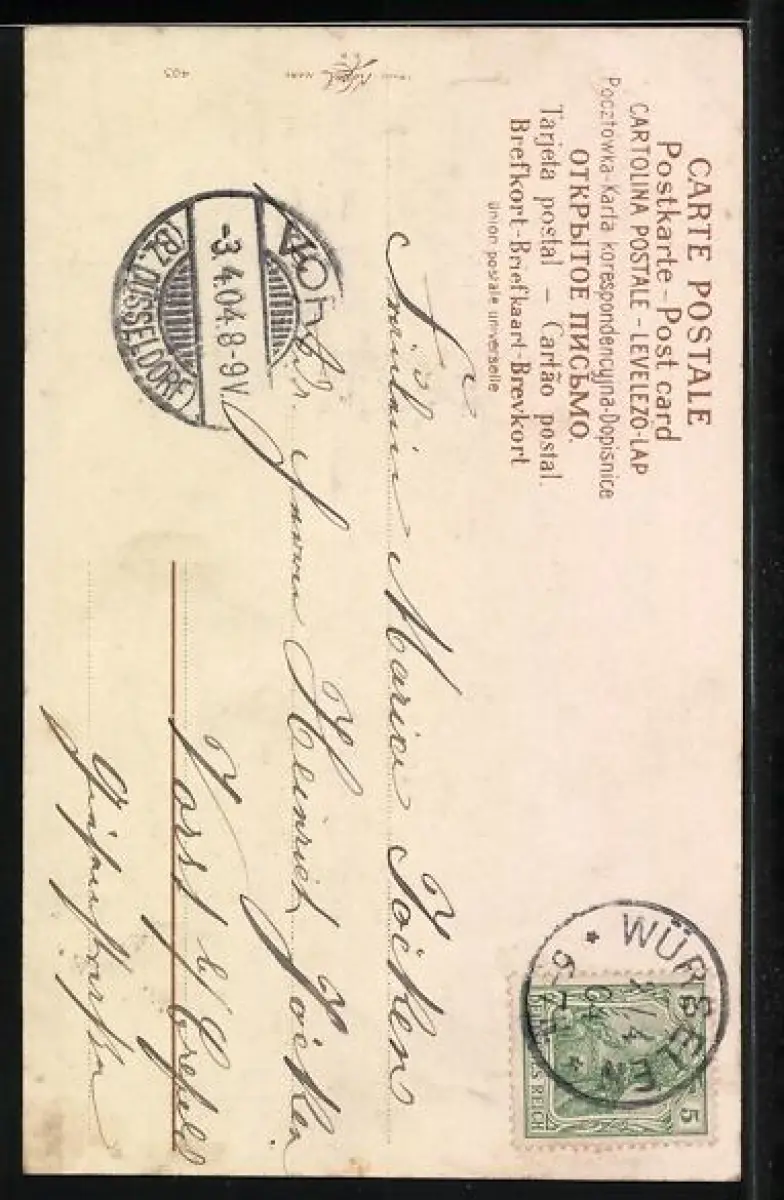 CARTE POSTALE
Postkarte - Post card
CARTOLINA POSTALE - LEVELEZÖ-LAP
Pocztowka-Karta korespondencyjna-Dopisnice
ОТКРЫТОЕ ПИСЬМО.
Tarjeta postal - Cartão postal.
Brefkort-Briefkaart-Brevkort
Union postale universelle
WÜRSELEN
04
5 5
REICH
Fräulein Maria Jöcken
Heinrich Jöcken
Vorst b/ Crefeld
VORST
-3.4.04.8-9V.
(BZ. DÜSSELDORF)
403